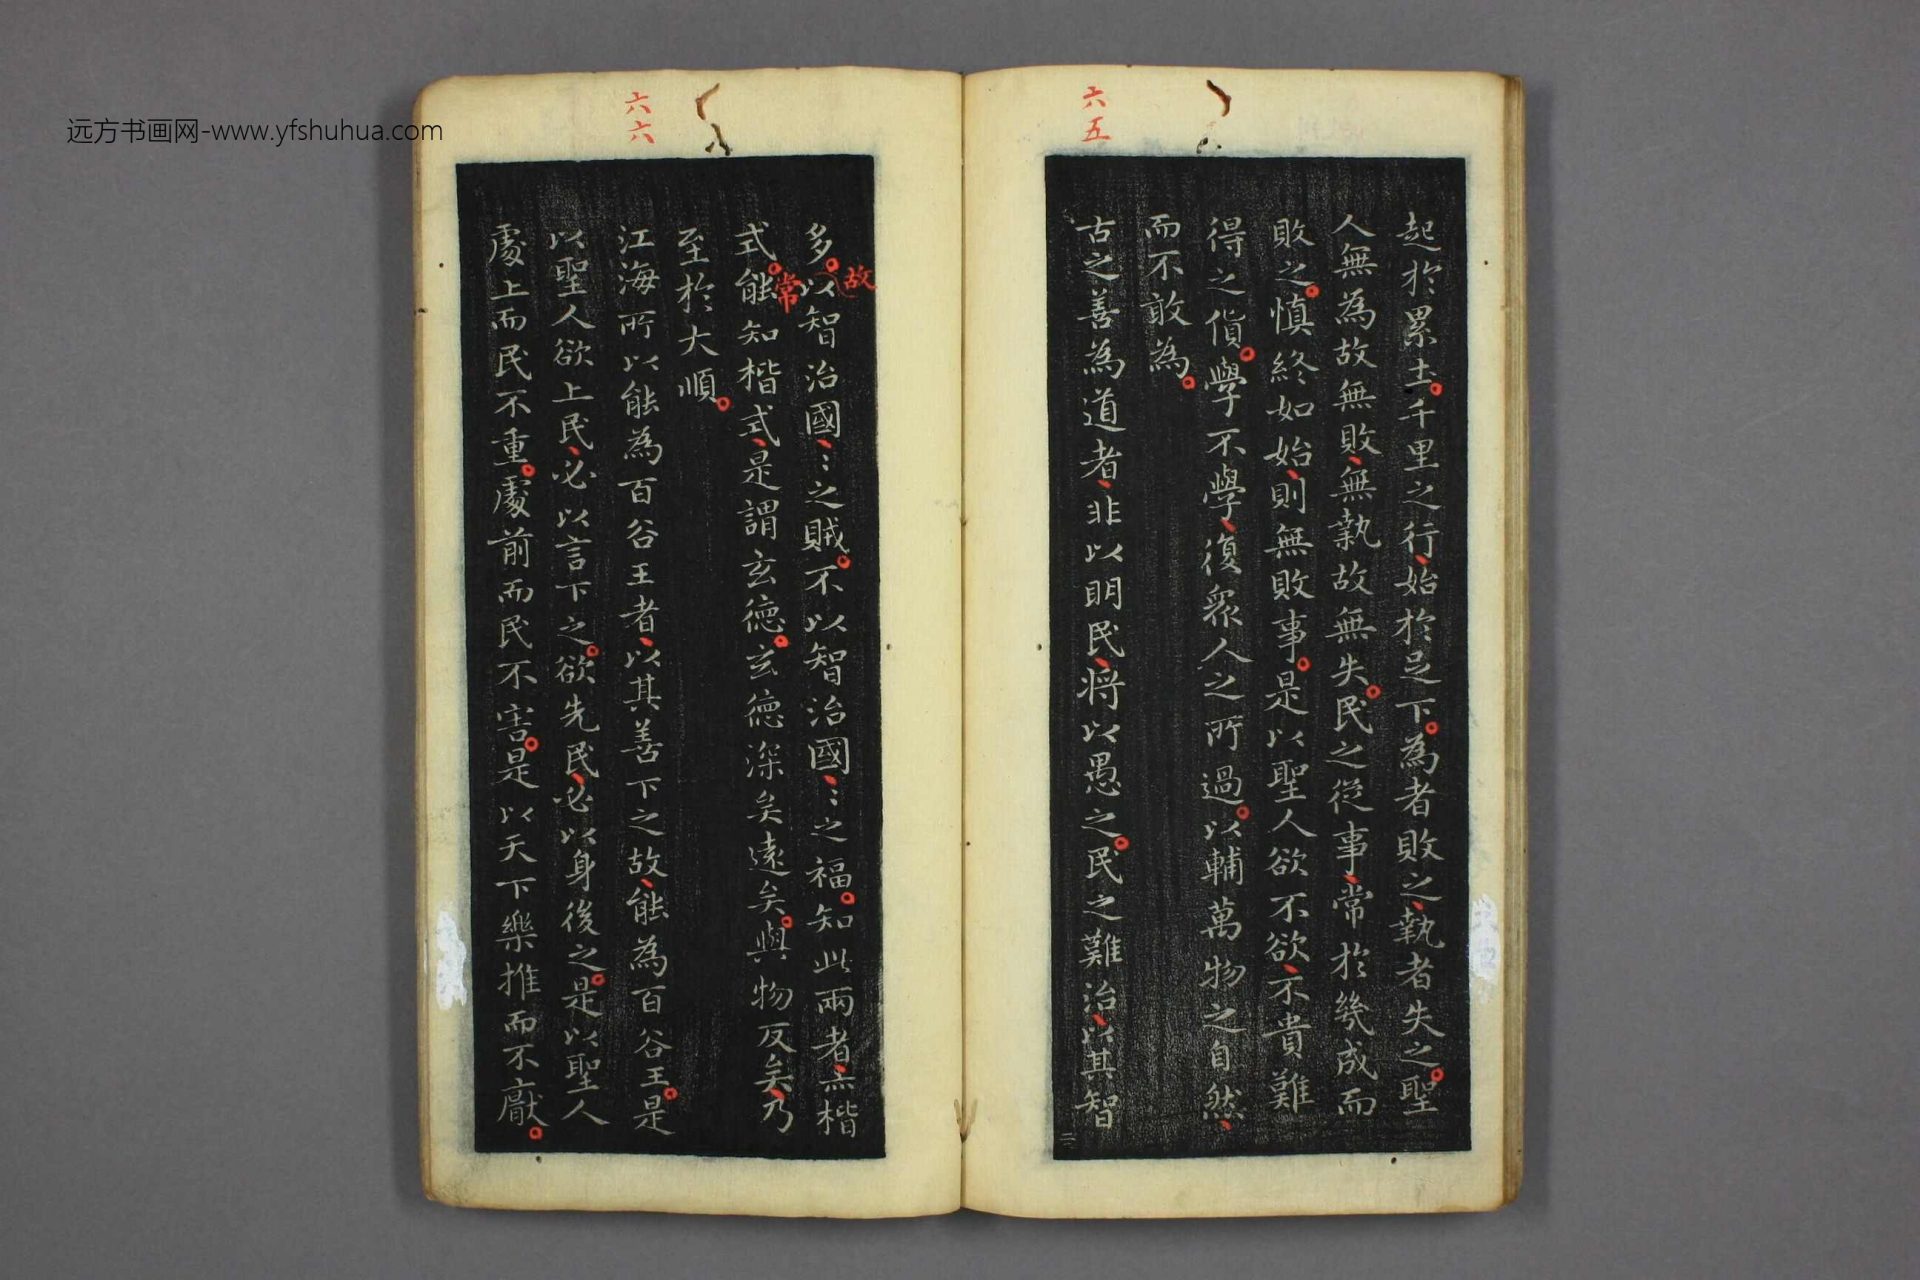 远方书画网-www.yfshuhua.com
六五
起於累土。千里之行、始於足下。為者敗之、執者失之。聖
人無為故無敗、無執故無失。民之從事、常於幾成而
敗之。慎終如始、則無敗事。是以聖人欲不欲、不貴難
得之貨。學不學、復眾人之所過。以輔萬物之自然、
而不敢為。
古之善為道者、非以明民、将以愚之。民之難治、以其智
二
六六
多。以智治國、〻之賊。不以智治國、〻之福。知此兩者、亦楷
故
式。能知楷式、是謂玄德。玄德深矣遠矣。與物反矣、乃
常
至於大順。
江海所以能為百谷王者、以其善下之故、能為百谷王。是
以聖人欲上民、必以言下之。欲先民、必以身後之。是以聖人
處上而民不重。處前而民不害。是以天下樂推而不厭。